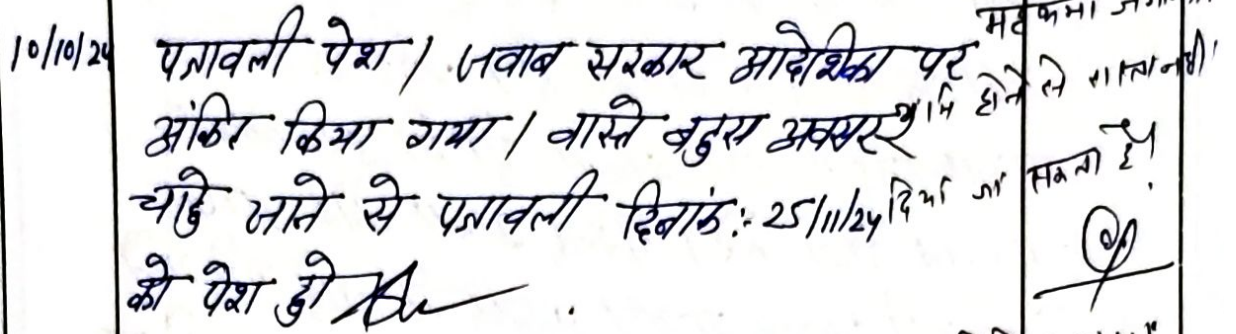 10/10/24 पत्रावली पेश / जवाब सरकार आदेशिका पर
अंकित किया गया / वास्ते बहस अवसर
चाहे जाने से पत्रावली दिनांक:- 25/11/24
को पेश हो
महकमा
भूमि होने से रास्ता नहीं
दिया जा सकता है।